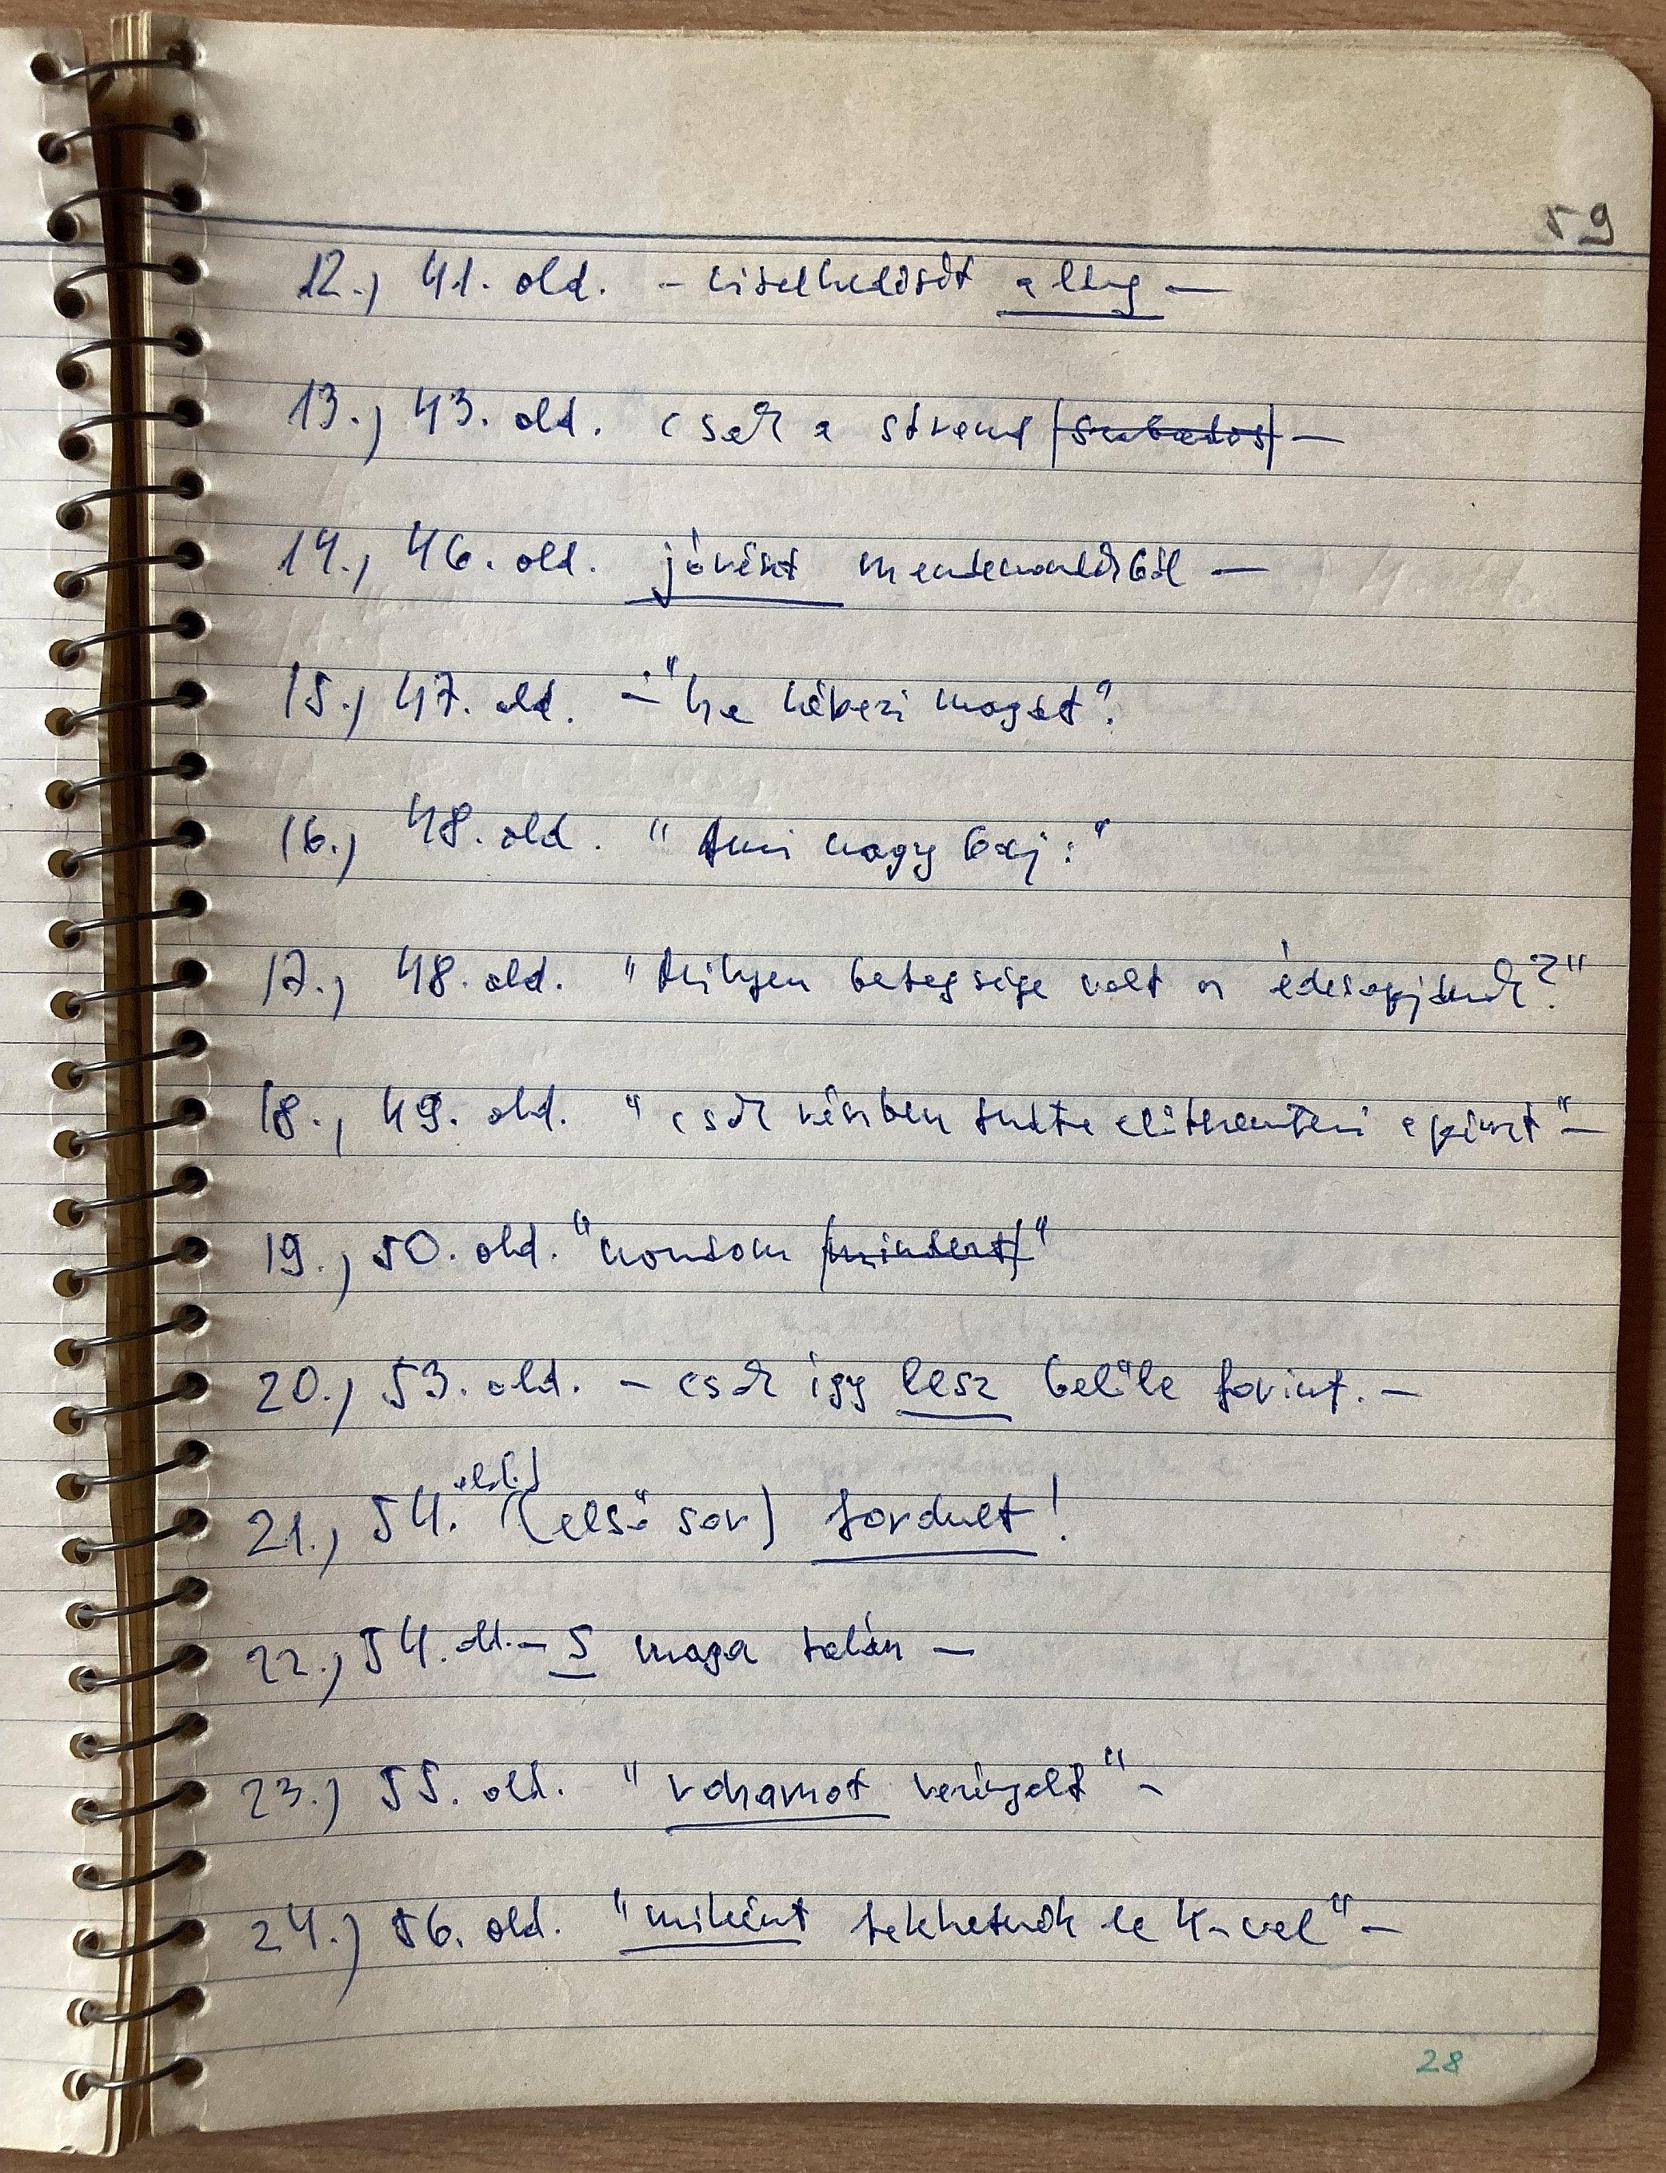 59
12., 41. old. - viselkedését alleg -
13., 43. old. csak a strand szabados -
14., 46. old. jórészt mendemondából -
15., 47. old. - "ha képezi magát"
16., 48. old. "Ami nagy baj:"
17., 48. old. "Milyen betegsége volt az édesapjának?"
18., 49. old. "csak részben tudta előteremteni a pénzt" -
19., 50. old. "mondom mindezt"
20., 53. old. - csak így lesz belőle forint. -
21., 54. old. (első sor) fordult!
22., 54. old. - S maga talán -
23., 55. old. "rohamot veríngelt" -
24., 56. old. "miként tekhetnők le K-vel" -
28